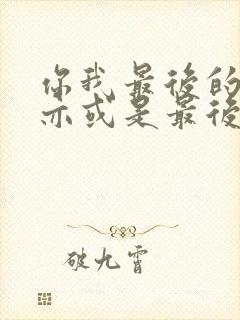 你我最后的
亦或是最后
破九霄